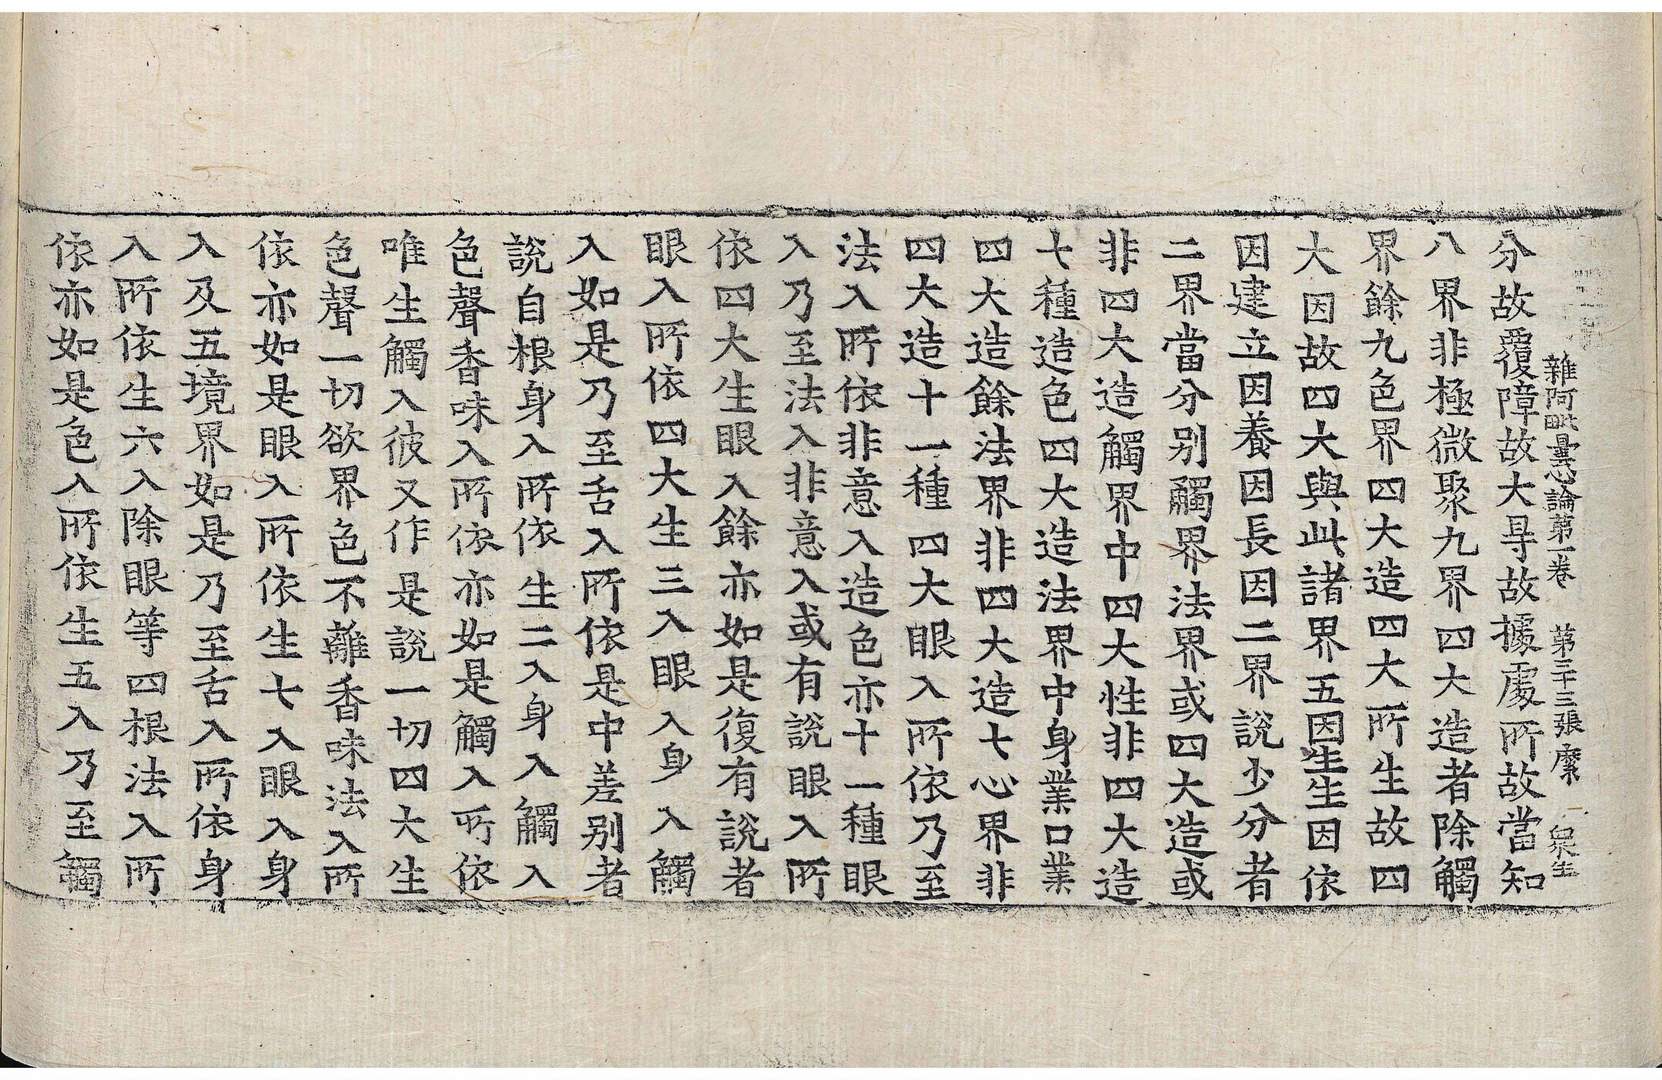 雜阿毗曇心論第一卷　第三十三張　縻
分故覆障故大㝵故據處所故當知
八界非極微聚九界四大造者除觸
界餘九色界四大造四大所生故四
大因故四大與此諸界五因生生因依
因建立因養因長因二界說少分者
二界當分别觸界法界或四大造或
非四大造觸界中四大性非四大造
七種造色四大造法界中身業口業
四大造餘法界非四大造七心界非
四大造十一種四大眼入所依乃至
法入所依非意入造色亦十一種眼
入乃至法入非意入或有說眼入所
依四大生眼入餘亦如是復有說者
眼入所依四大生三入眼入身入觸
入如是乃至舌入所依是中差别者
說自根身入所依生二入身入觸入
色聲香味入所依亦如是觸入所依
唯生觸入彼又作是說一切四大生
色聲一切欲界色不離香味法入所
依亦如是眼入所依生七入眼入身
入及五境界如是乃至舌入所依身
入所依生六入除眼等四根法入所
依亦如是色入所依生五入乃至觸